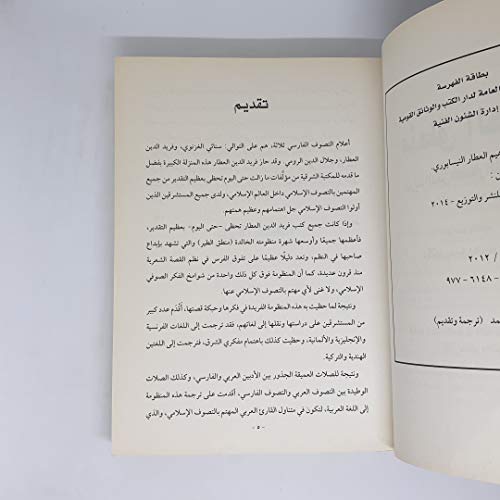 تقديم
أعلام التصوف الفارسي ثلاثة، هم على التوالي: سنائي الغزنوي، وفريد الدين
العطار، وجلال الدين الرومي. وقد حاز فريد الدين العطار هذه المنزلة الكبيرة بفضل
ما قدمه للمكتبة الشرقية من مؤلفات ما زالت حتى اليوم تحظى بعظيم التقدير من جميع
المهتمين بالتصوف الإسلامي داخل العالم الإسلامي، ولدى جميع المستشرقين الذين
أولوا التصوف الإسلامي جل اهتمامهم وعظيم همتهم.
وإذا كانت جميع كتب فريد الدين العطار تحظى -حتى اليوم- بعظيم التقدير،
فأعظمها جميعًا وأوسعها شهرة منظومته الخالدة (منطق الطير) والتي تشهد بإبداع
صاحبها في النظم، وتعد دليلًا عظيمًا على تفوق الفرس في نظم القصة الشعرية
منذ قرون عديدة، كما أن المنظومة فوق كل ذلك واحدة من شوامخ الفكر الصوفي
الإسلامي، ولا غنى لأي مهتم بالتصوف الإسلامي عنها.
ونتيجة لما حظيت به هذه المنظومة الفريدة في فكرها وحبكة قصتها، أقدم عدد كبير
من المستشرقين على دراستها ونقلها إلى لغاتهم، فقد ترجمت إلى اللغات الفرنسية
والإنجليزية والألمانية، وحظيت كذلك باهتمام مفكري الشرق، فترجمت إلى اللغتين
الهندية والتركية.
ونتيجة للصلات العميقة الجذور بين الأدبين العربي والفارسي، وكذلك الصلات
الوطيدة بين التصوف العربي والتصوف الفارسي، أقدمت على ترجمة هذه المنظومة
إلى اللغة العربية، لتكون في متناول القارئ العربي المهتم بالتصوف الإسلامي، والذي
- ٥ -
بطاقة الفهرسة
العامة لدار الكتب والوثائق القومية
إدارة الشئون الفنية
العطار النيسابوري.
للنشر والتوزيع - ٢٠١٤
/ ٢٠١٢
٩٧٧ - ٦١٤٨ -
(ترجمة وتقديم)